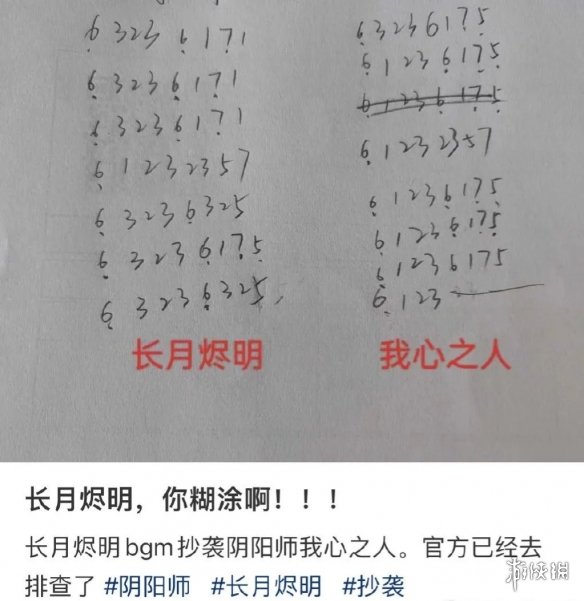 6 3 2 3 6 1 7 1
6 3 2 3 6 1 7 1
6 3 2 3 6 1 7 1
6 1 2 3 2 3 5 7
6 3 2 3 6 3 2 5
6 3 2 3 6 1 7 5
6 3 2 3 6 3 2 5
长月烬明
6 3 2 3 6 1 7 5
6 1 2 3 6 1 7 5
6 1 2 3 6 1 7 5
6 1 2 3 2 3 5 7
6 1 2 3 6 1 7 5
6 1 2 3 6 1 7 5
6 1 2 3 6 1 7 5
6 1 2 3 —
我心之人
长月烬明，你糊涂啊！！！
长月烬明bgm抄袭阴阳师我心之人。官方已经去
排查了 #阴阳师 #长月烬明 #抄袭
游侠网